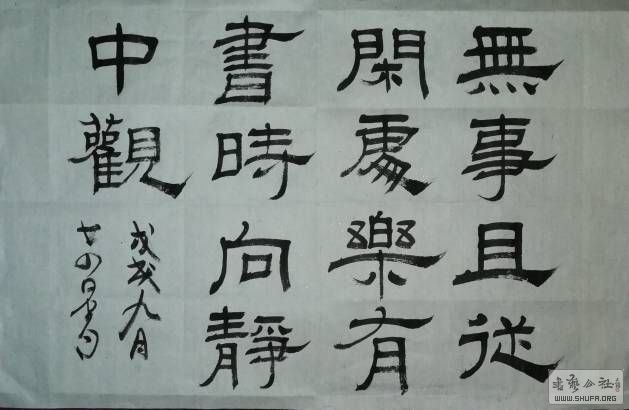 無事且従
閑處樂有
書時向靜
中觀
戊戌九月
WWW.SHUFA.ORG